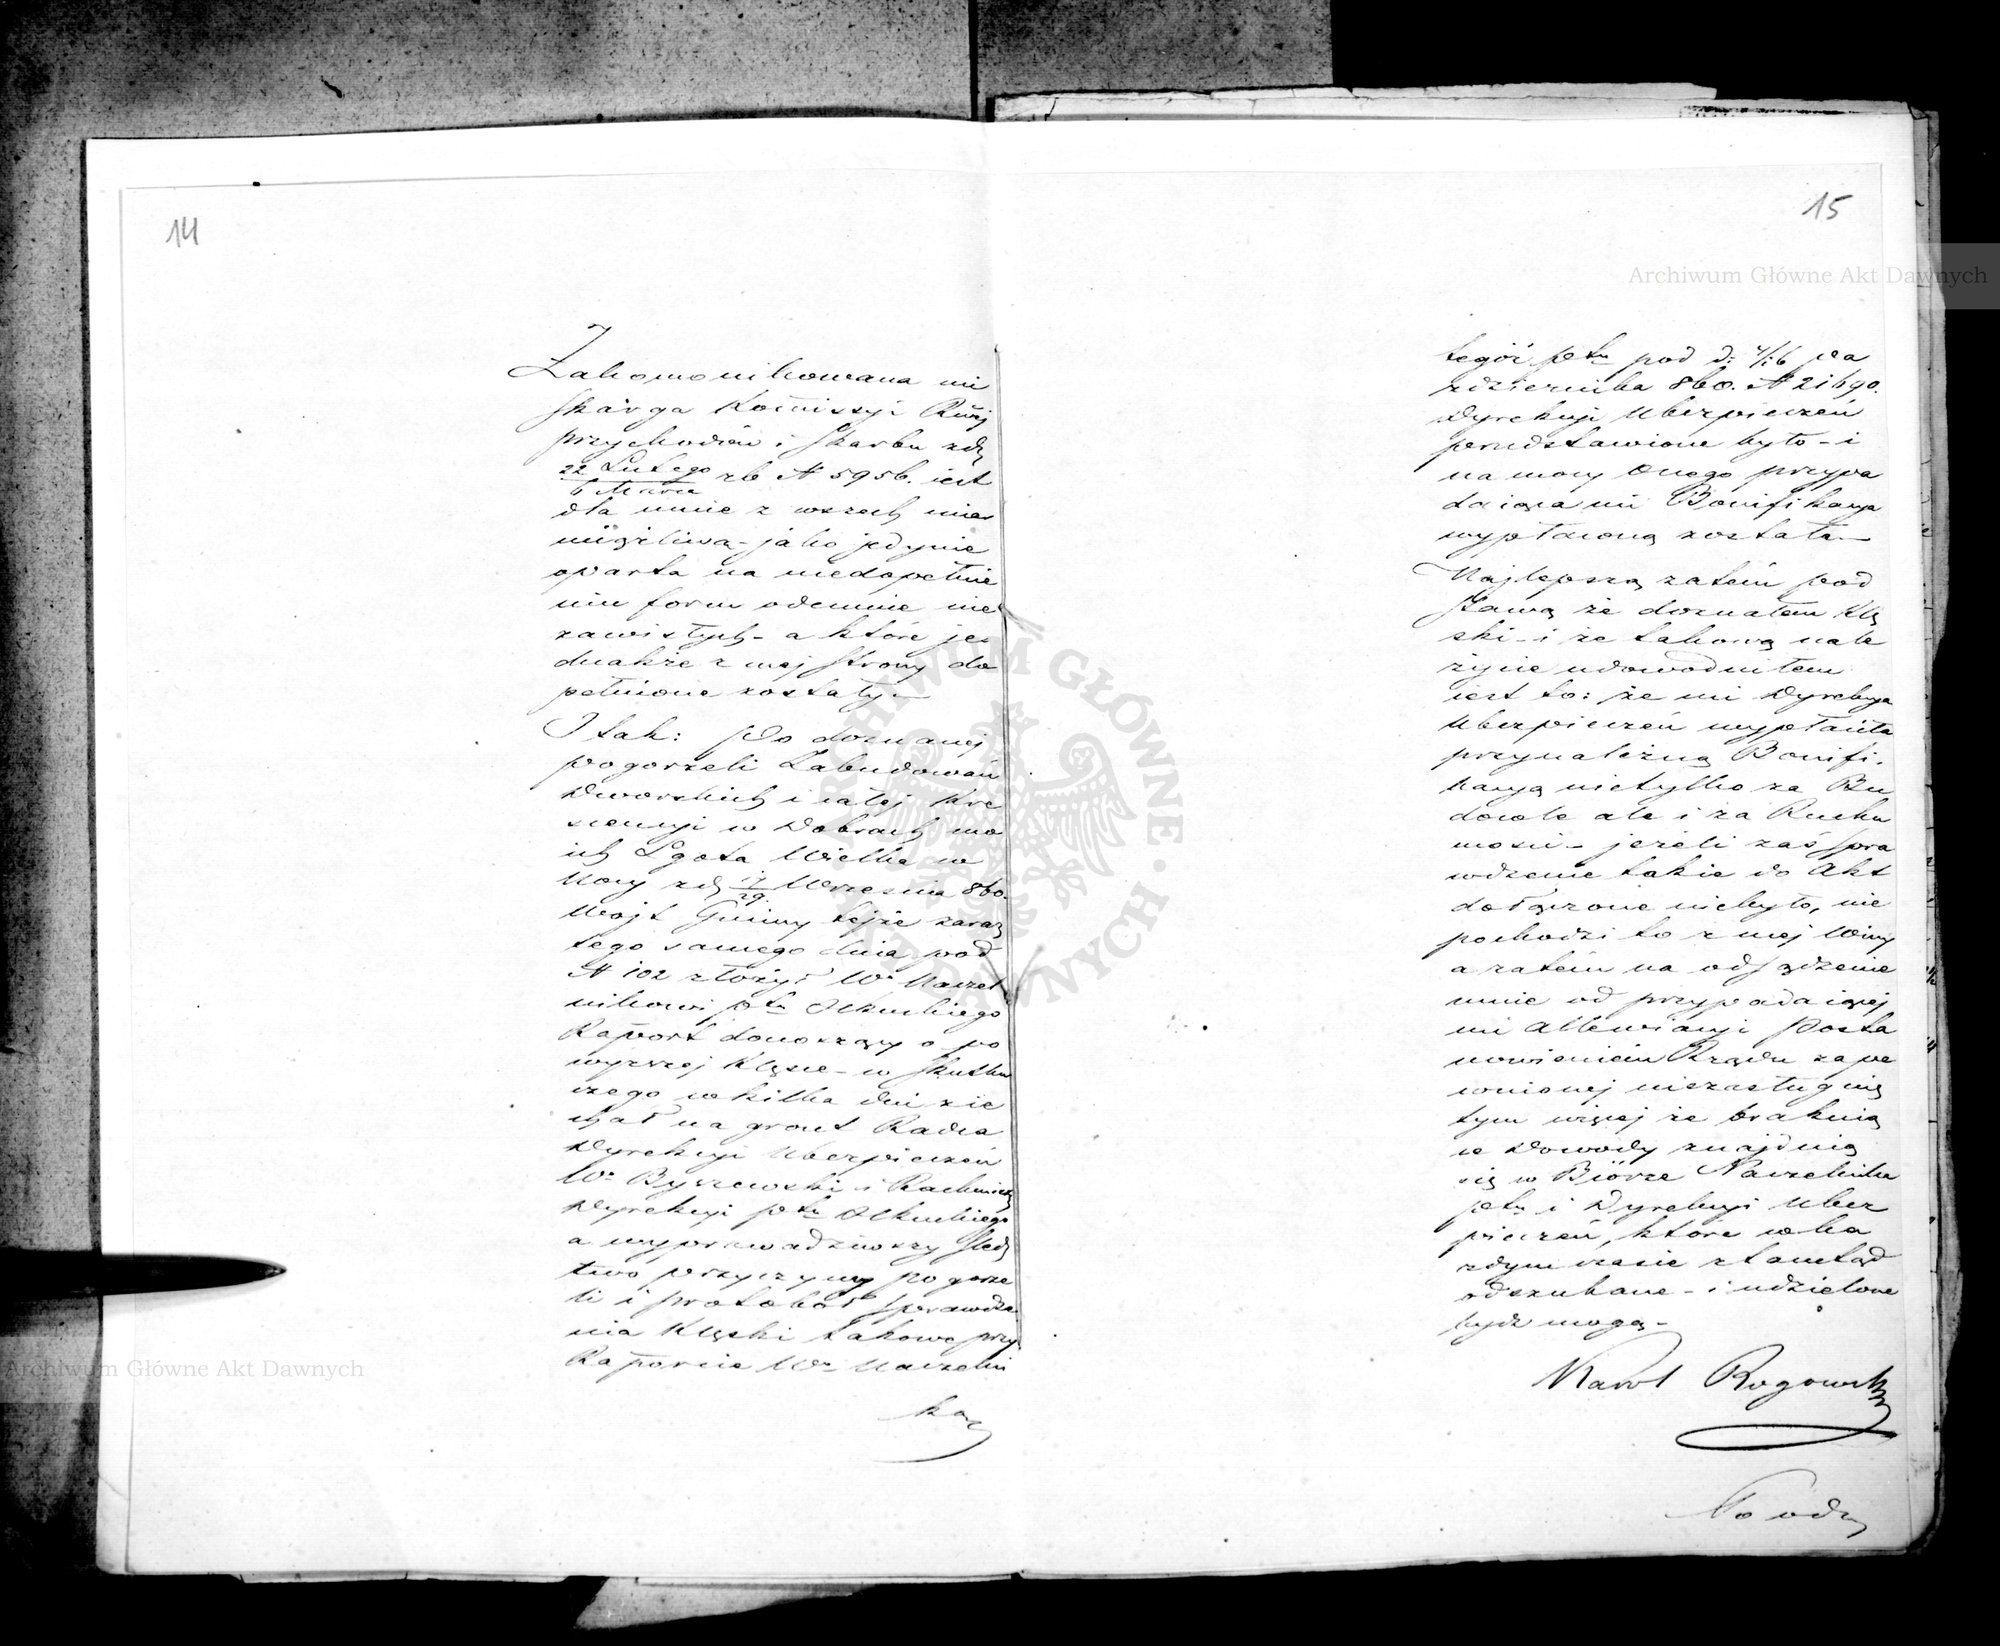 14
Zakomonikowana mi
skarga Kommissyi Rząj
przychodów i Skarbu z dą
22 Lutego
6 Marca
rb N 5956. iest
dla mnie z wszech mia
uciążliwą – jako jedynie
oparta na niedopełnie
niu form odemnie nie
zawisłych – a które je
dnakże z mej strony do
pełnione zostały –
I tak: Po doznanej
pogorzeli Zabudowań
Dworskich i całej Kre
scencyi w Dobrach mo
ich Lgota Wielka w
Nocy z dą 17/29 Września 860.
Wójt Gminy tejże zaraz
tego samego dnia pod
N 102 złożył Wu Naczel
nikowi ptu Olkuskiego
Raport donoszący o po
wyższej Klęsce – w skutku
czego w kilka dni zie
chał na grunt Radca
Dyrekcyi Ubezpieczeń
Wu Byszewski i
Dyrekcyi ptu Olkuskiego
a wyprowadziwszy śled
two przyczyny pogorze
li i protokół sprawdze
nia Klęski takowe przy
Raporcie Wu Naczelni
ka
15
tegóż ptu pod d: 4/16 pa
zdziernika 860. N 21690.
Dyrekcyi Ubezpieczeń
przedstawione było – i
na mocy Onego przypa
daiąca mi Bonifikacya
wypłaconą została –
Najlepszą zatém pod
stawą że doznałem Klę
ski – i że takową nale
życie udowodniłem
iest to: że mi Dyrekcya
Ubezpieczeń wypłaciła
przynależną Bonifi.
kacyą nietylko za Bu
dowle ale i za Rucho
mości – jeżeli zaś spra
wdzenie takie do Akt
dołączone niebyło, nie
pochodzi to z mej Winy
a zatém na odsądzenie
mnie od przypadaiącej
mi Allewiacyi Posta
nowieniem Rządu zape
wnionej niezasługuię
tym więcej że braknią
ce Dowody znajduią
się w Biórze Naczelnika
ptu i Dyrekcyi Ubez
pieczeń, które w ka
żdym czasie z tamtąd
odszukane – i udzielone
bydź mogą –
Karol Rogowski
No odą
Archiwum Główne Akt Dawnych
Archiwum Główne Akt Dawnych
ARCHIWUM GŁÓWNE AKT DAWNYCH